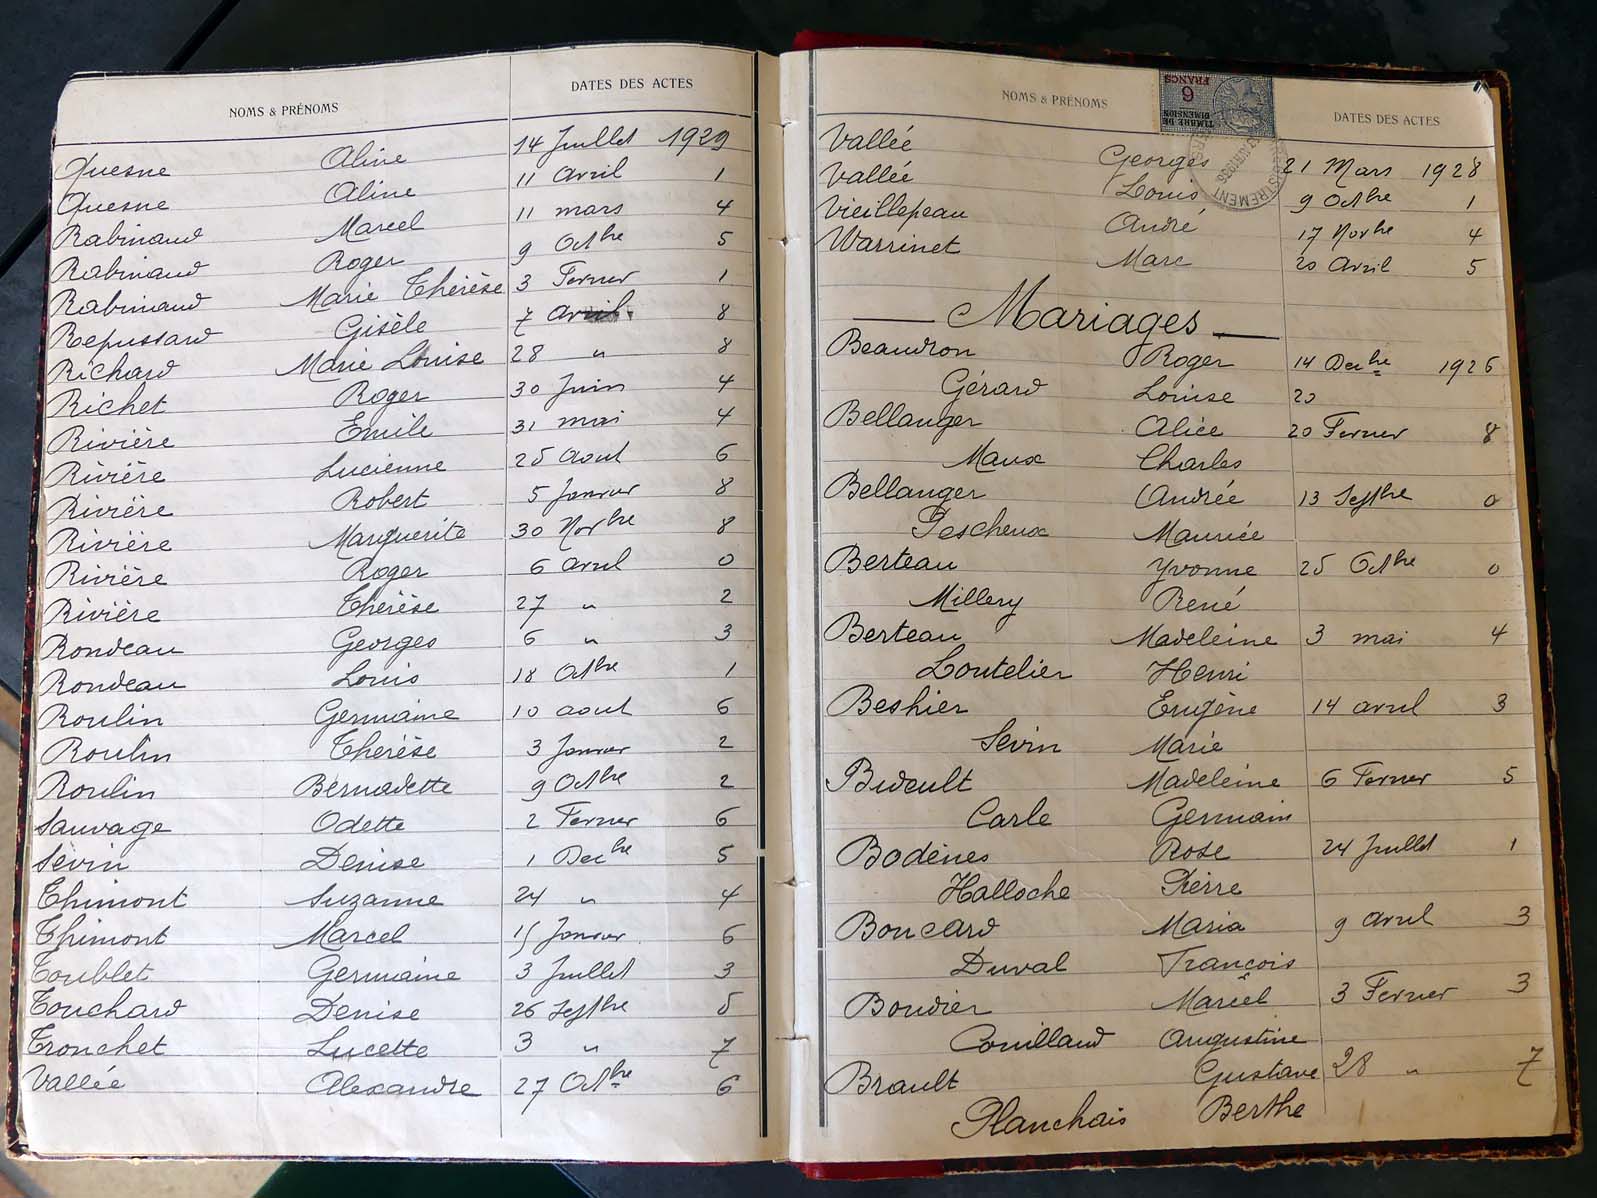 NOMS & PRÉNOMS DATES DES ACTES
Quesne Aline 14 Juillet 1929
Quesne Aline 11 avril 1
Rabinaud Marcel 11 mars 4
Rabinaud Roger 9 Octbre 5
Rabinaud Marie Thérèse 3 Fevrier 1
Repussard Gisèle 7 avril 8
Richard Marie Louise 28 " 8
Richet Roger 30 Juin 4
Rivière Emile 31 mai 4
Rivière Lucienne 25 Aout 6
Rivière Robert 5 Janvier 8
Rivière Marguerite 30 Novbre 8
Rivière Roger 6 avril 0
Rivière Thérèse 27 " 2
Rondeau Georges 6 " 3
Rondeau Louis 18 Octbre 1
Roulin Germaine 10 aout 6
Roulin Thérèse 3 Janvier 2
Roulin Bernadette 9 Octbre 2
Sauvage Odette 2 Fevrier 6
Sevin Denise 1 Decbre 5
Thimont Suzanne 24 " 4
Thimont Marcel 15 Janvier 6
Toublet Germaine 3 Juillet 3
Touchard Denise 26 Septbre 5
Tronchet Lucette 3 " 7
Vallée Alexandre 27 Octbre 6
NOMS & PRÉNOMS DATES DES ACTES
TIMBRE DE
DIMENSION
6
FRANCS
Vallée Georges 21 Mars 1928
Vallée Louis 9 Octbre 1
Vieillepeau André 17 Novbre 4
Warrinet Marc 20 Avril 5
Mariages
Beaudron Roger 14 Decbre 1926
Gérard Louise 20
Bellanger Alice 20 Fevrier 8
Maux Charles
Bellanger Andrée 13 Septbre 0
Pescheux Maurice
Berteau Yvonne 25 Octbre 0
Millery René
Berteau Madeleine 3 mai 4
Loutelier Henri
Beshier Eugène 14 avril 3
Sevin Marie
Bidault Madeleine 6 Fevrier 5
Carle Germain
Bodènes Rose 24 Juillet 1
Halloche Pierre
Boucard Maria 9 avril 3
Duval François
Boudier Marcel 3 Fevrier 3
Couillaud Augustine
Brault Gustave 28 " 7
Planchais Berthe